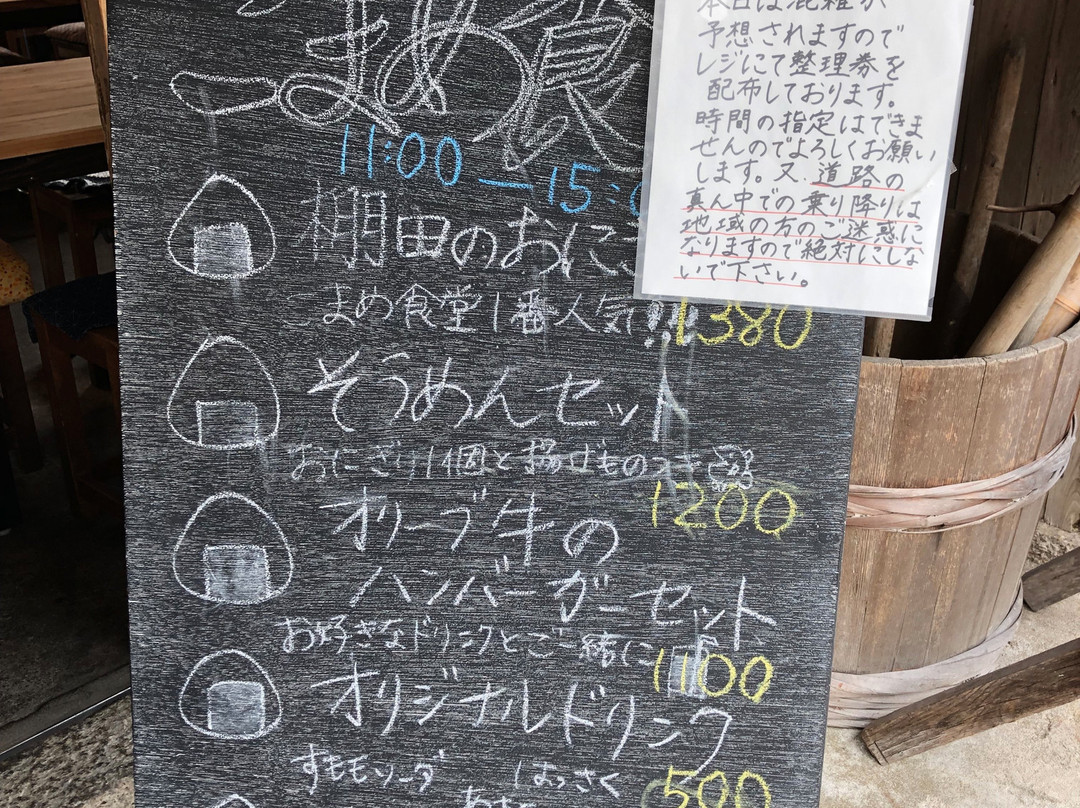 こまめ食
11:00 — 15:0
棚田のおにご
こまめ食堂1番人気!!
1380
そうめんセット
おにぎり1個と揚げものつき
1200
オリーブ牛の
ハンバーガーセット
お好きなドリンクとご一緒に
1100
オリジナルドリンク
すももソーダ はっさく
500
本日は混雑が
予想されますので
レジにて整理券を
配布しております。
時間の指定はできま
せんのでよろしくお願い
します。又、道路の
真ん中での乗り降りは
地域の方のご迷惑に
なりますので絶対にしな
いで下さい。